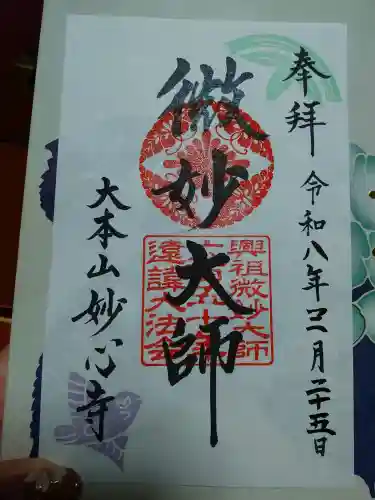 奉拝
令和八年二月二十五日
微妙大師
興祖微妙大師
遠諱大法会
大本山妙心寺